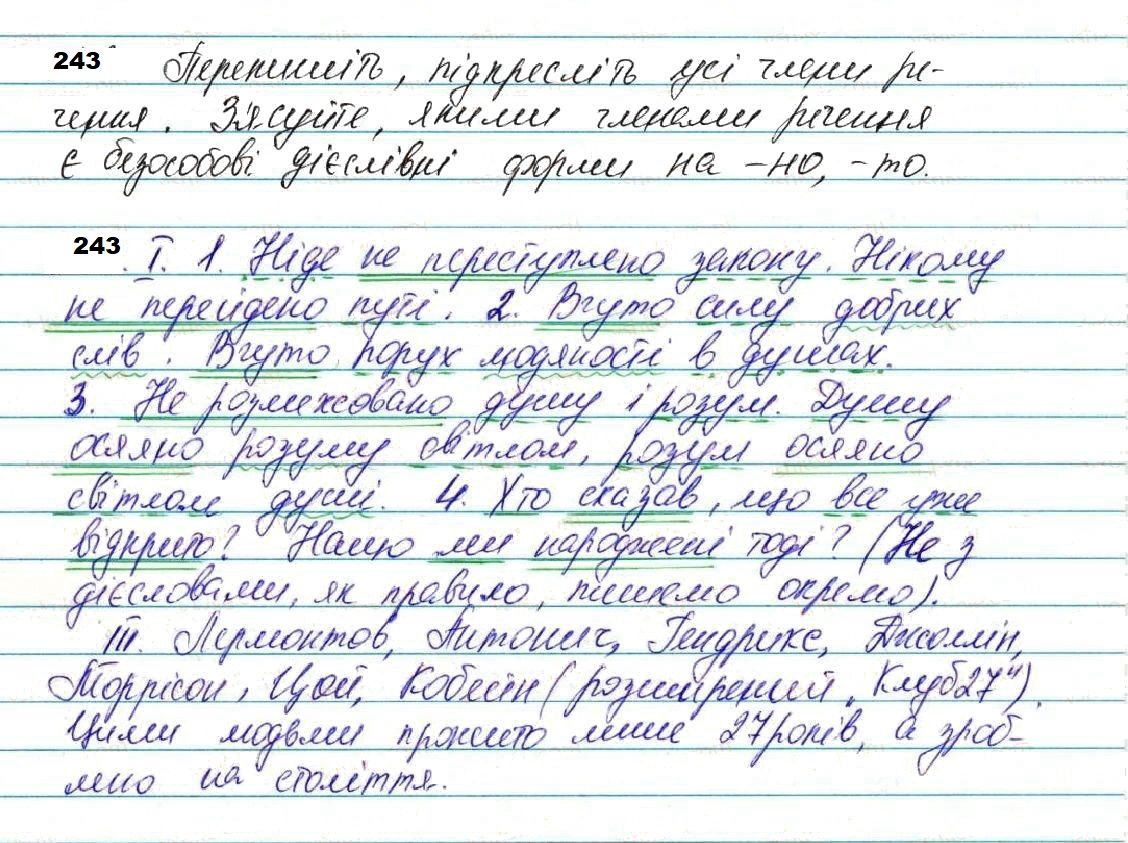 243 Перепишіть, підкресліть усі члени ре-
чення. З'ясуйте, якими членами речення
є безособові дієслівні форми на -но, -то.
243. I. 1. Ніде не переступлено закону. Нікому
не перейдено путі. 2. Вчуто силу добрих
слів. Вчуто порух людяності в душах.
3. Не розмежовано душу і розум. Душу
осяяно розуму світлом, розум осяяно
світлом душі. 4. Хто сказав, що все уже
відкрито? Нащо ми народжені тоді? (Не з
дієсловами, як правило, пишемо окремо).
III. Лермонтов, Антонич, Гендрикс, Джоплін,
Моррісон, Цой, Кобейн (розширений „Клуб 27").
Цими людьми прожито лише 27 років, а зроб-
лено на століття.